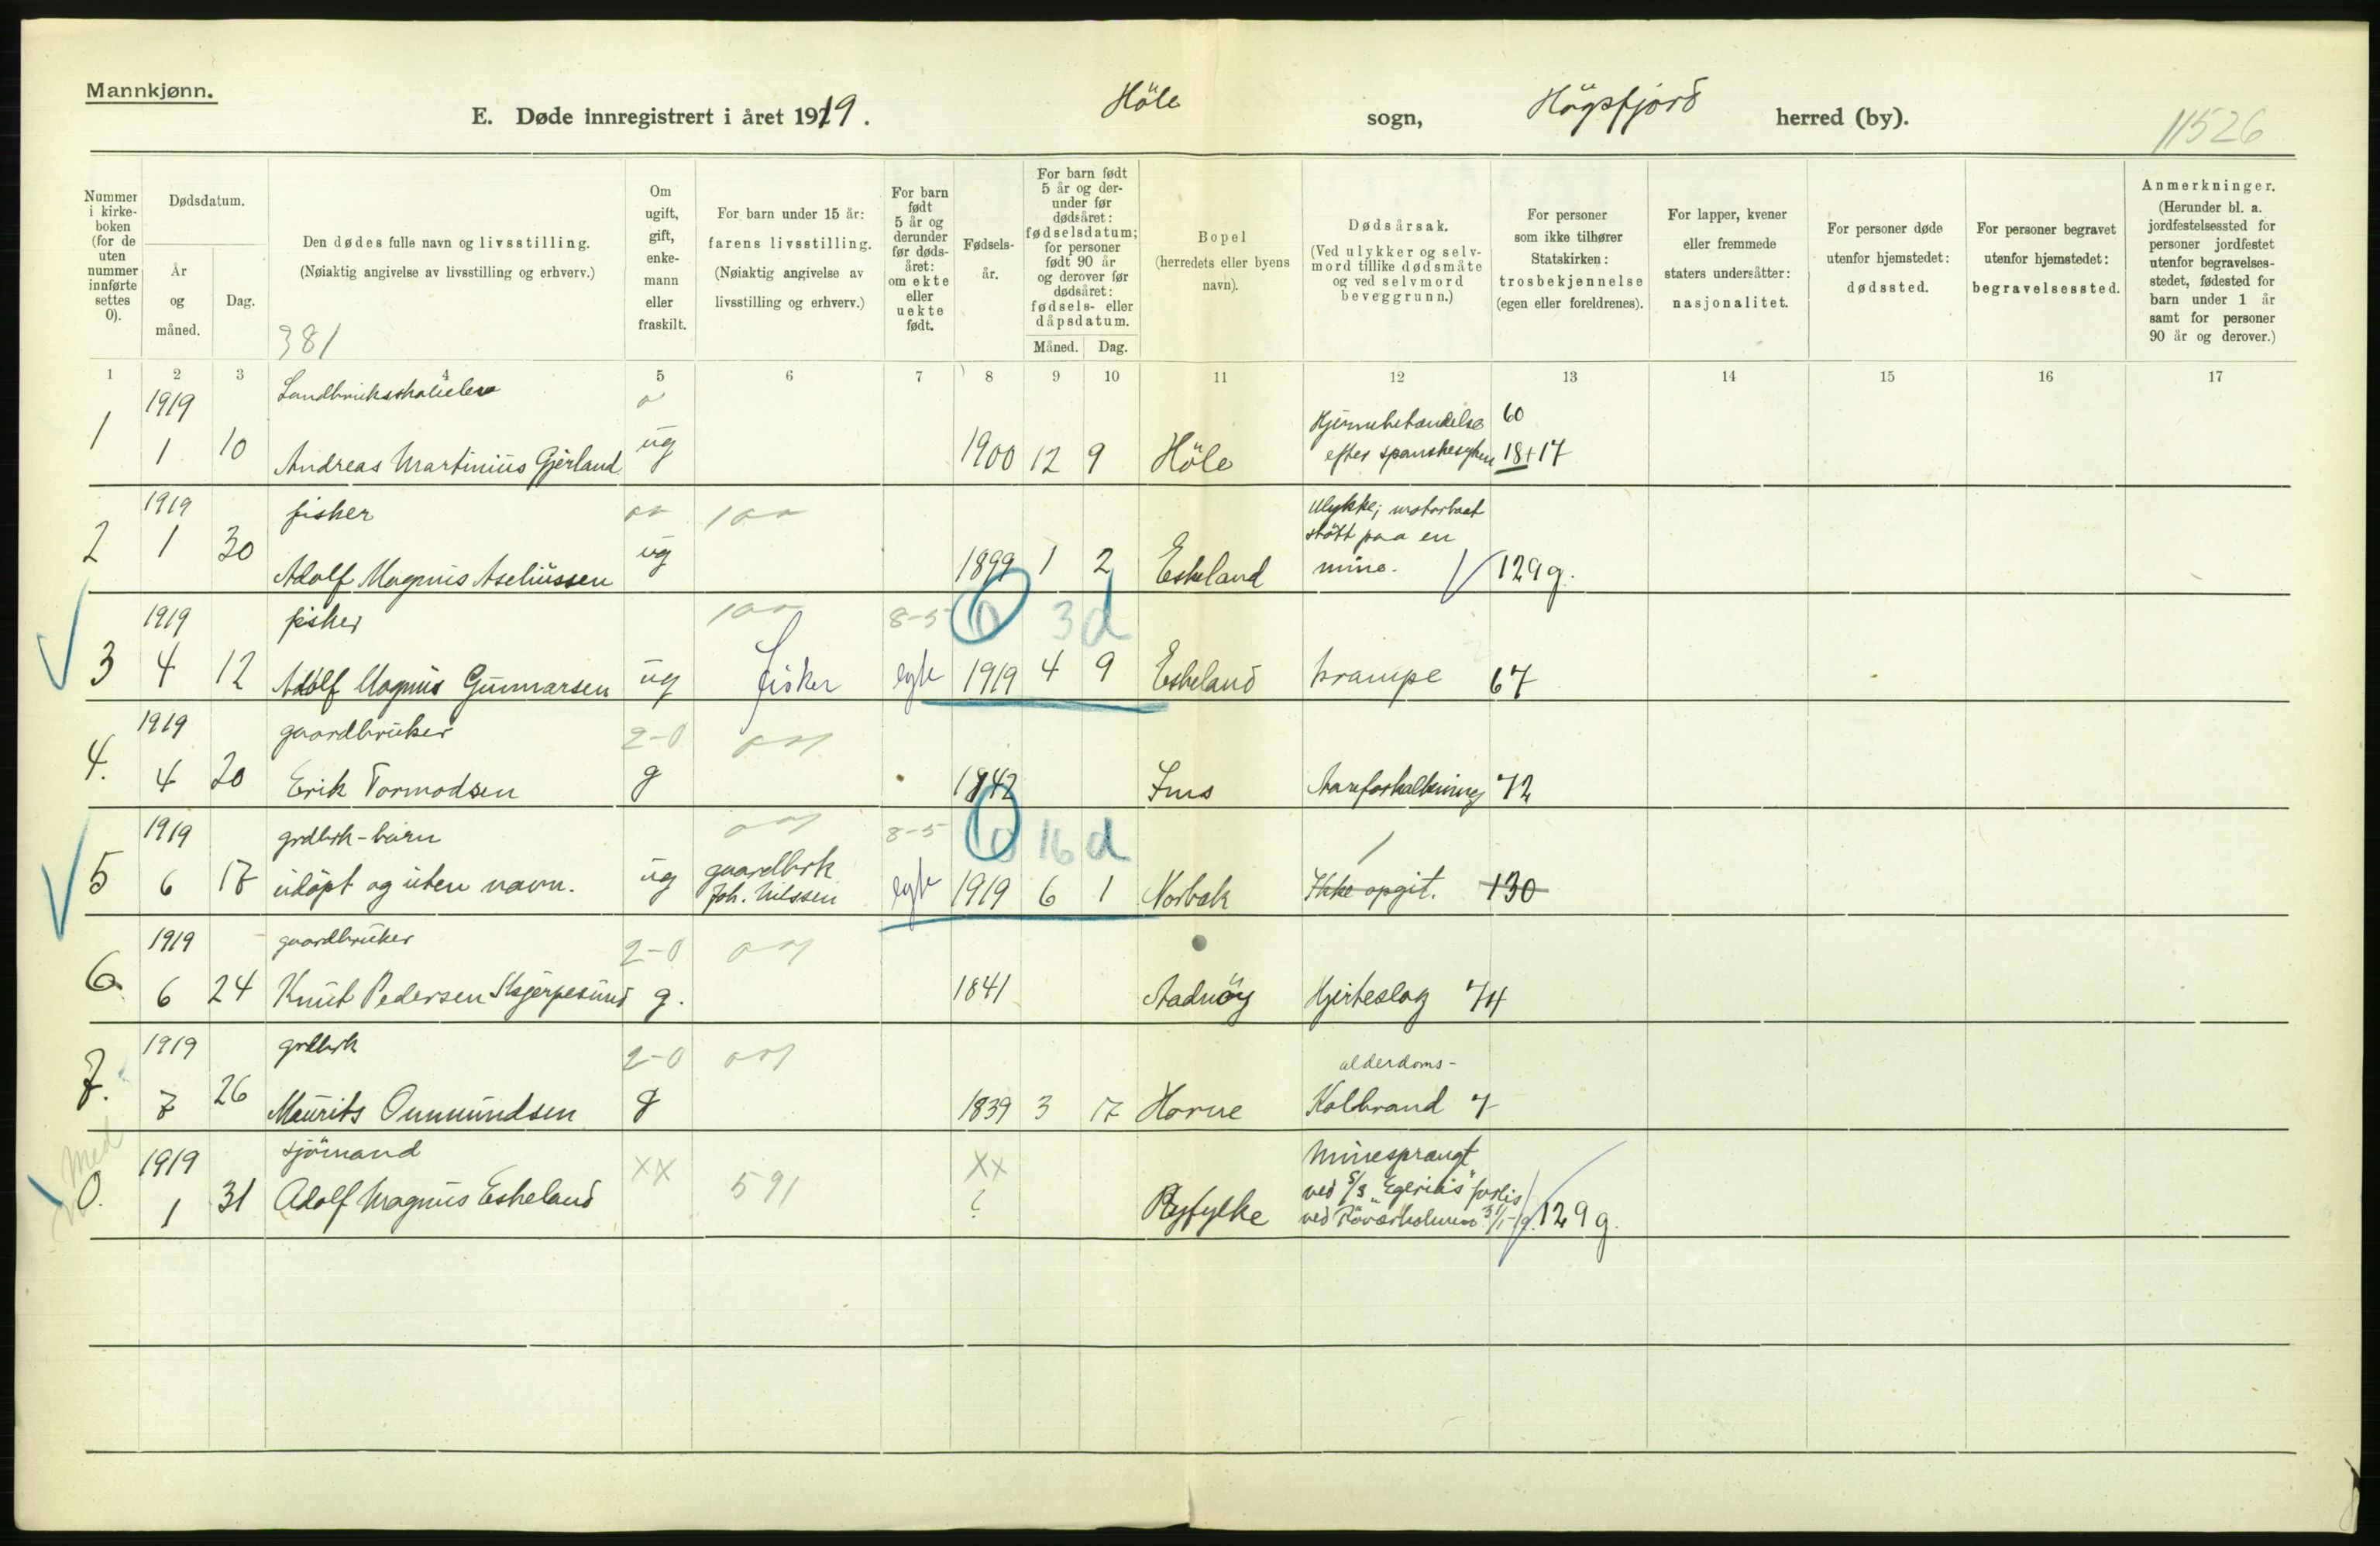 Mannkjønn.
E. Døde innregistrert i året 1919. Höle sogn, Högsfjord herred (by).
11526
Nummer i kirke- boken (for de uten nummer innførte settes 0).
Dødsdatum.
År og måned.
Dag.
Den dødes fulle navn og livsstilling.
(Nøiaktig angivelse av livsstilling og erhverv.)
381
Om ugift, gift, enke- mann eller fraskilt.
For barn under 15 år: farens livsstilling. (Nøiaktig angivelse av livsstilling og erhverv.)
For barn født 5 år og derunder før døds- året: om ekte eller uekte født.
Fødsels- år.
For barn født 5 år og der- under før dødsåret: fødselsdatum; for personer født 90 år og derover før dødsåret: fødsels- eller dåpsdatum.
Måned. Dag.
Bopel (herredets eller byens navn).
Dødsårsak. (Ved ulykker og selv- mord tillike dødsmåte og ved selvmord beveggrunn.)
For personer som ikke tilhører Statskirken: trosbekjennelse (egen eller foreldrenes).
For lapper, kvener eller fremmede staters undersåtter: nasjonalitet.
For personer døde utenfor hjemstedet: dødssted.
For personer begravet utenfor hjemstedet: begravelsessted.
Anmerkninger. (Herunder bl. a. jordfestelsessted for personer jordfestet utenfor begravelses- stedet, fødested for barn under 1 år samt for personer 90 år og derover.)
1 2 3 4 5 6 7 8 9 10 11 12 13 14 15 16 17
1919 Landbruksskoleelev
Hjernebetændelse 60
1 1 10 Andreas Martinius Gjerland ug 1900 12 9 Höle efter spanskesyken 18+17
1919 fisker Ulykke; motorbaat
stött paa en
2 1 30 Adolf Magnus Aseliussen ug 1899 1 2 Eskeland mine. 129g.
1919 fisker 8-5 0 3d
3 4 12 Adolf Magnus Gunnarsen ug fisker egte 1919 4 9 Eskeland krampe 67
1919 gaardbruker 2-0
4. 4 20 Erik Tormodsen g 1842 Ims Aareforkalkning 72
1919 grdbrk-barn 8-5 0 16d
5 6 17 udöpt og uten navn. ug gaardbrk Joh. Nilssen egte 1919 6 1 Norbak Ikke opgit. 130
1919 gaardbruker 2-0
6 6 24 Knut Pedersen Skjerpesund g. 1841 Aadnöy Hjerteslag 74
1919 grdbrk 2-0 alderdoms-
7. 7 26 Maurits Ommundsen g 1839 3 17 Horne Kolbrand 7
Med
1919 sjömand XX 591 XX Minesprængt
ved S/S "Egerias" forlis
0. 1 31 Adolf Magnus Eskeland ? Ryfylke ved Röværholmen 31/1-19. 129g.